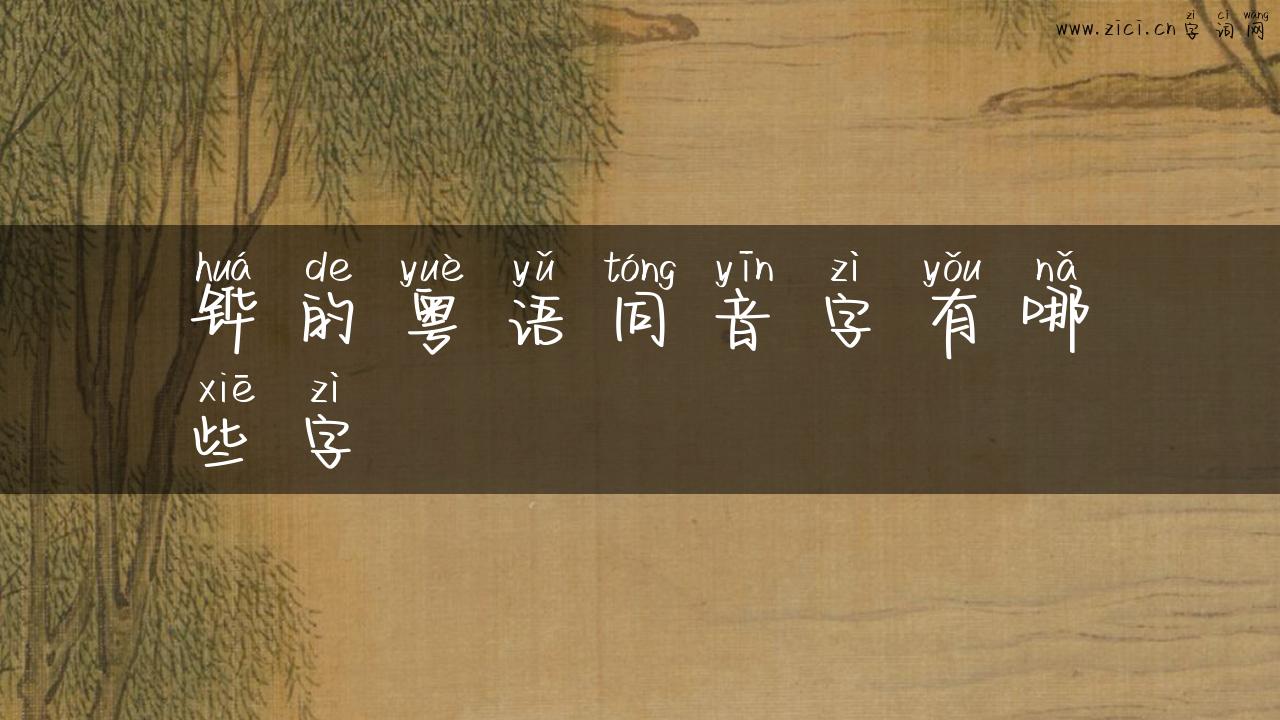 zì cí wǎng
www.zici.cn字词网
huá de yuè yǔ tóng yīn zì yǒu nǎ
铧的粤语同音字有哪
xiē zì
些字